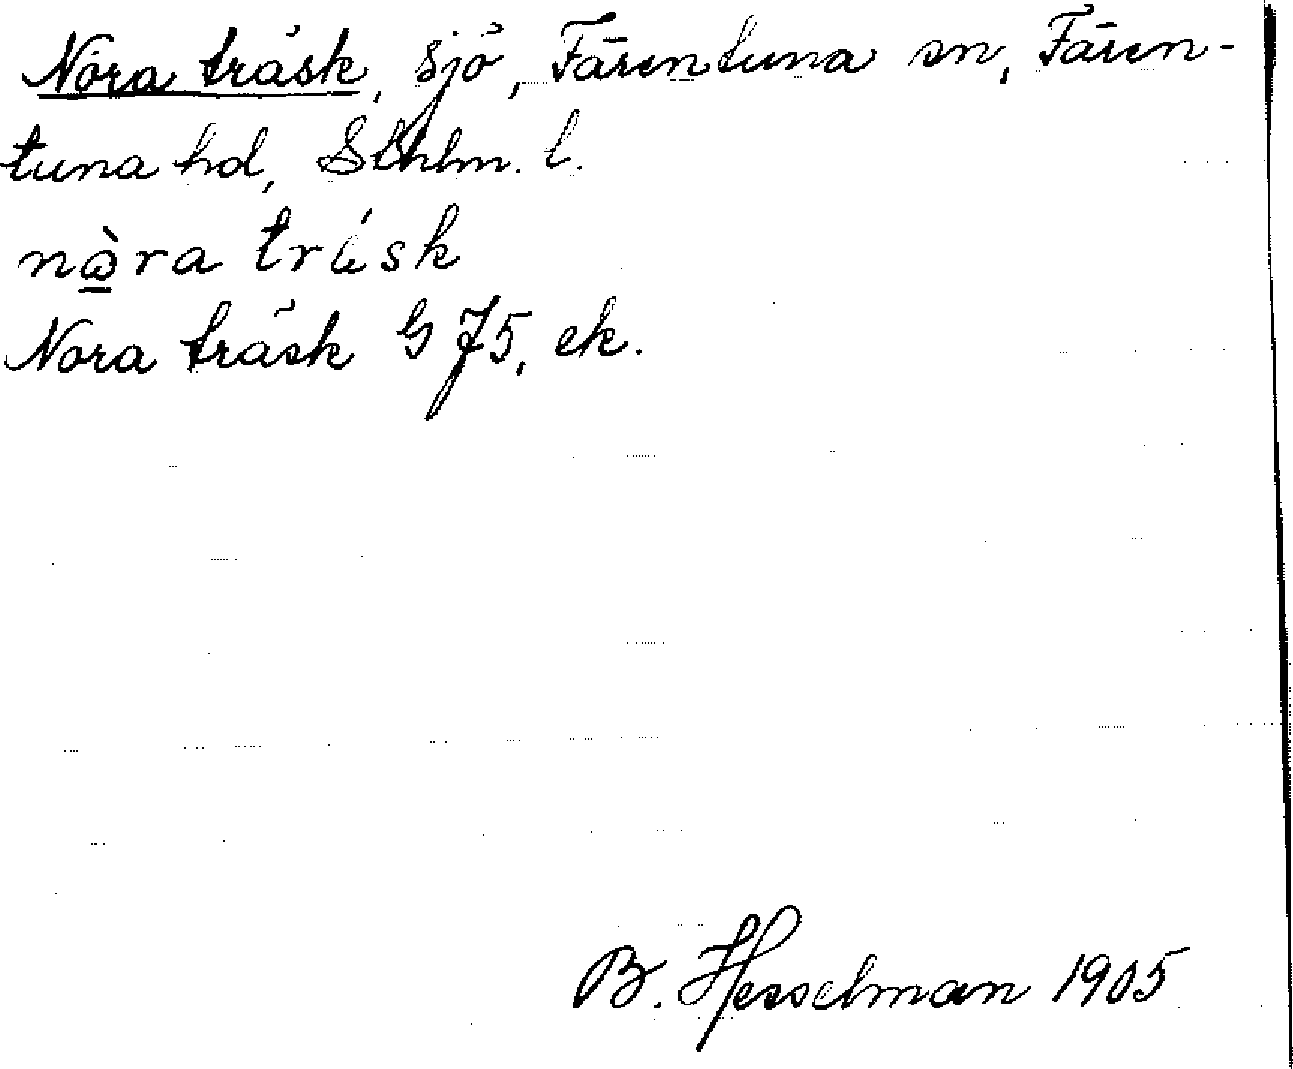 Nora träsk, sjö, Färentuna sn, Fären-
tuna hd, Sthlm. l.
nàra trä́sk
Nora träsk G 75, ek.
B. Hesselman 1905